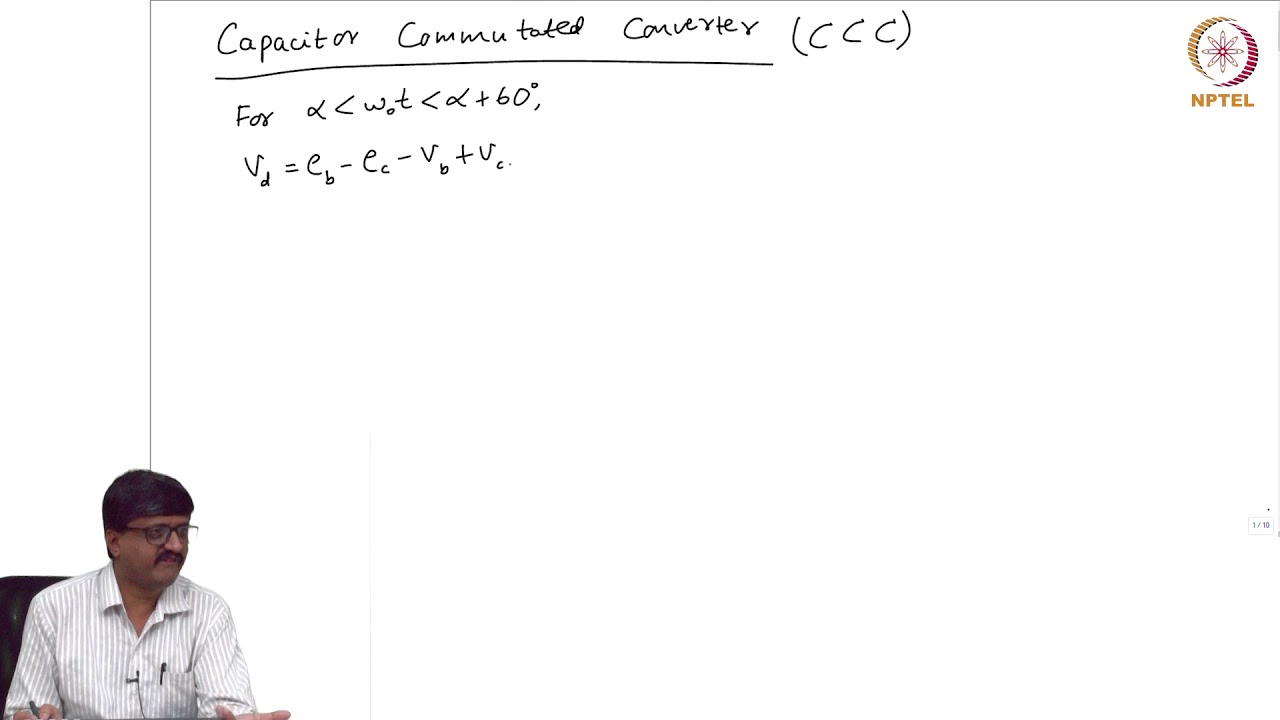 Capacitor Commutated Converter (CCC)
For α < ω₀t < α + 60°,
V_d = e_b - e_c - V_b + V_c.
NPTEL
1 / 10